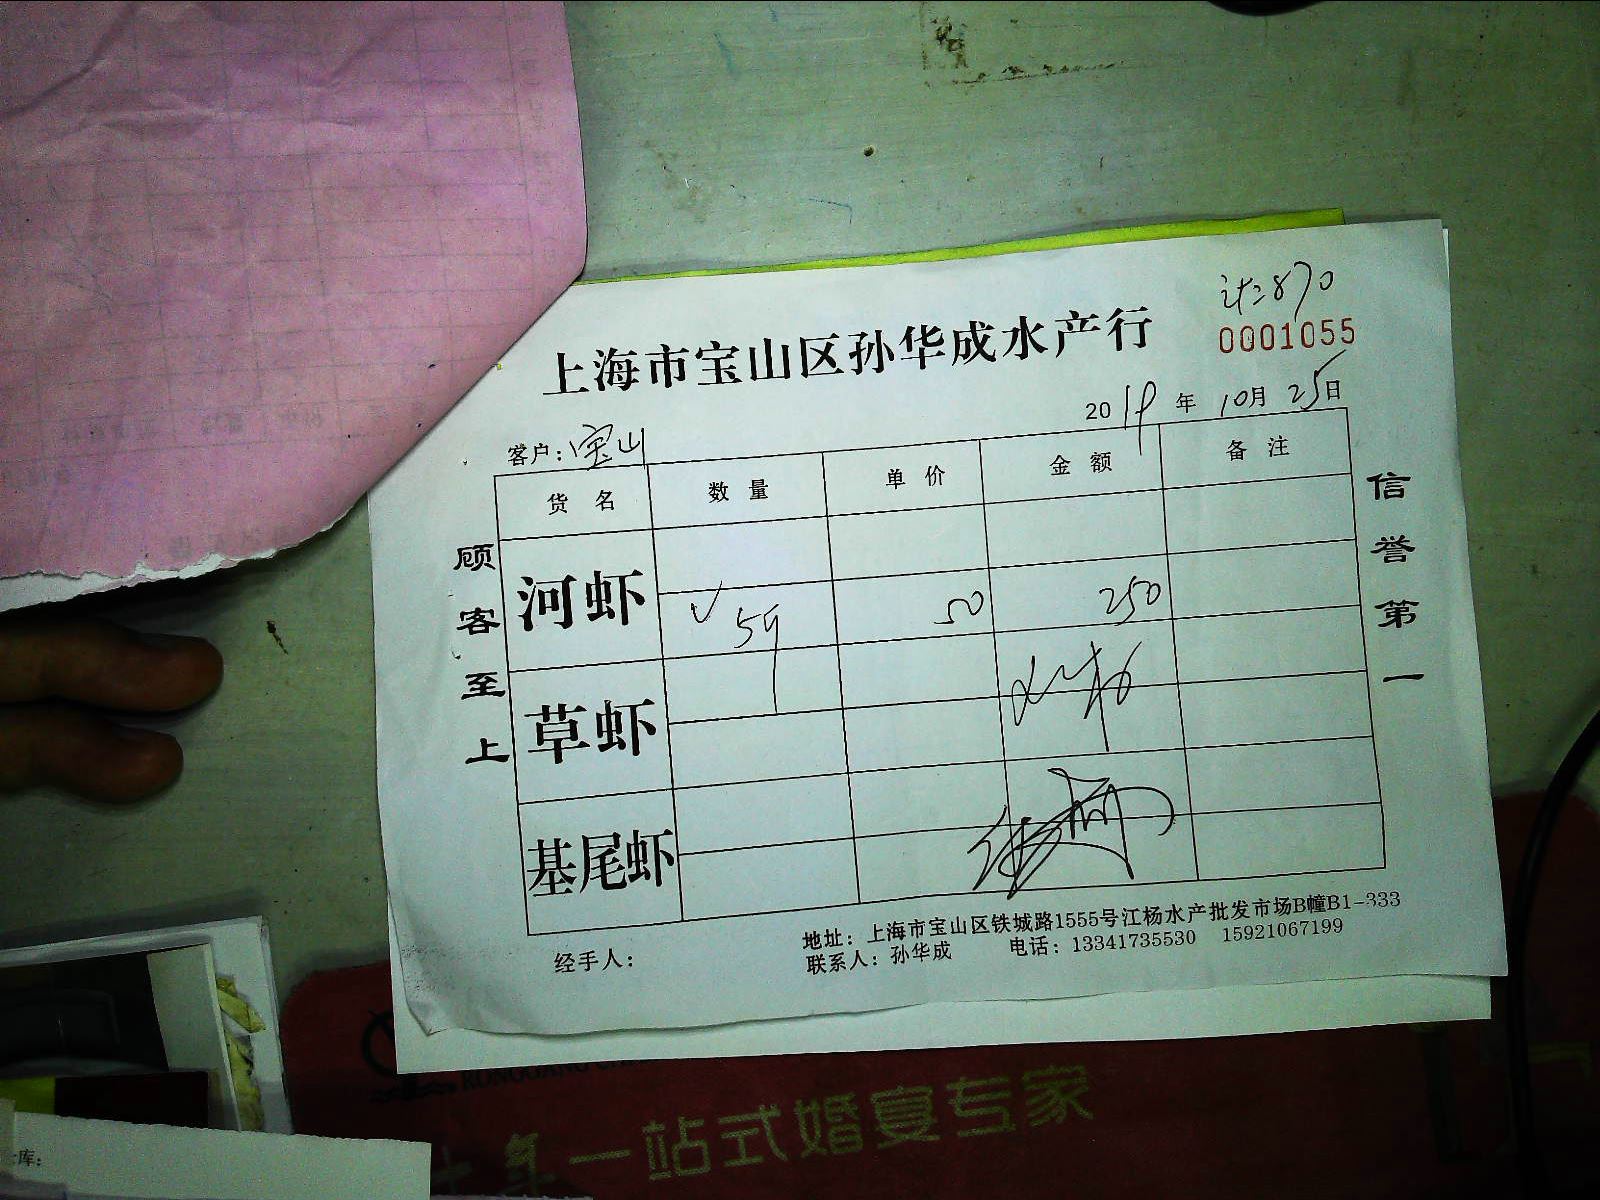 计:870
上海市宝山区孙华成水产行
0001055
2019年10月25日
客户:宝山
货名 数量 单价 金额 备注
河虾 √ 5斤 50 250
草虾
基尾虾
顾客至上
信誉第一
地址:上海市宝山区铁城路1555号江杨水产批发市场B幢B1-333
经手人: 联系人:孙华成 电话:13341735530 15921067199
一站式婚宴专家
库: